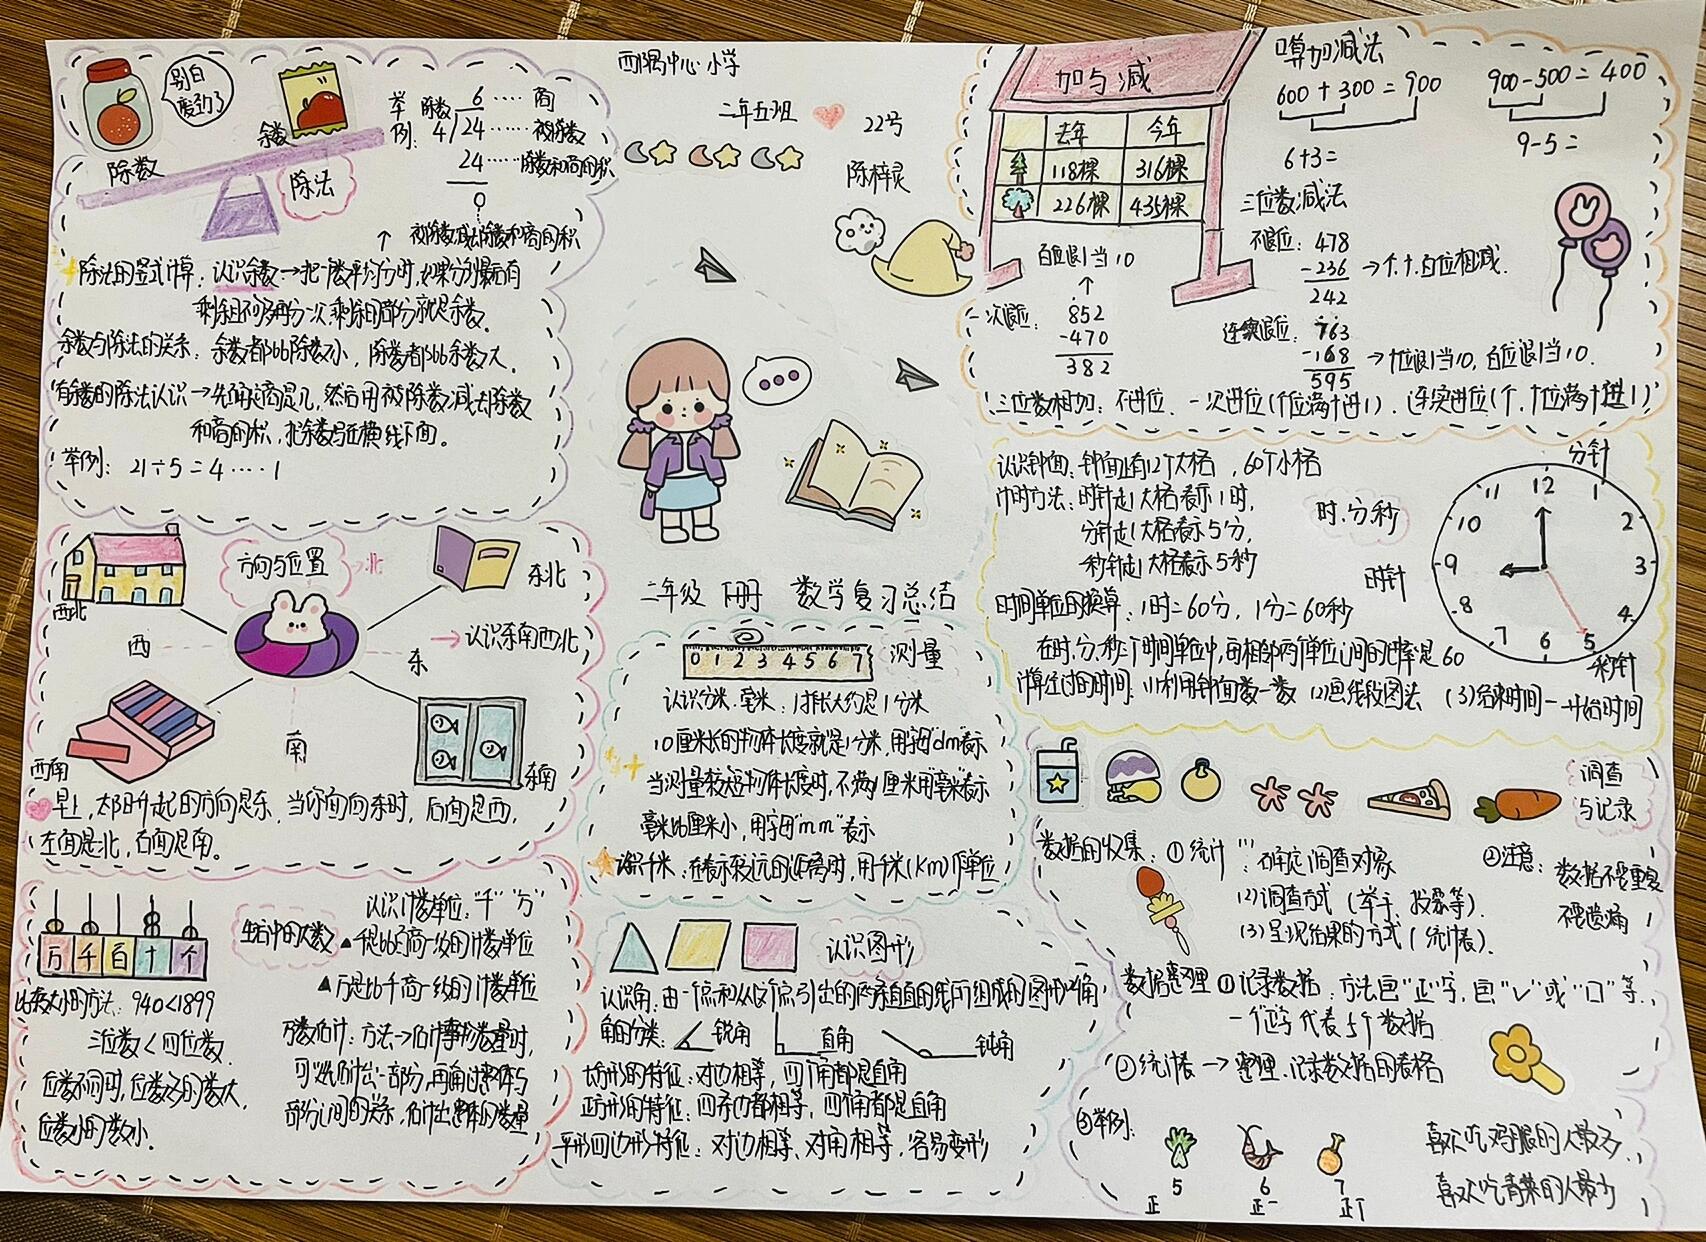 西隅中心小学
二年五班 22号
陈梓灵
二年级 下册 数学复习总结
别白
费力了
余数
除数
除法
举
例:
除数 6 ····商
4 24 ······被除数
24 ·····除数和商的积
0
被除数减去除数和商的积
除法的竖式计算:认识余数→把一个数平均分时,如果分到最后有
剩余且不够再分一次,剩余的部分就是余数。
余数与除法的关系:余数都比除数小,除数都比余数大。
有余数的除法认识→先确定商是几,然后用被除数减去除数
和商的积,把余数写在横线下面。
举例:21÷5=4····1
加与减
去年 今年
118棵 316棵
226棵 435棵
口算加减法
600+300=900
6+3=
900-500=400
9-5=
三位数减法
不退位:478
-236
242
→个.十.百位相减.
百位退1当10
一次退位:852
-470
382
连续退位:763
-168
595
→十位退1当10,百位退1当10.
三位数相加:不进位、一次进位(个位满十进1)、连续进位(个、十位满十进1)
方向与位置
北
西北
东北
西
东
→认识东南西北
西南
南
东南
早上,太阳升起的方向是东,当你面向东时,后面是西,
左面是北,右面是南。
测量
0 1 2 3 4 5 6 7
认识分米.毫米:1拃长大约是1分米
10厘米长的物体长度就是1分米,用字母"dm"表示
当测量较短物体长度时,不满1厘米用"毫米"表示
毫米比厘米小,用字母"mm"表示
认识千米:在表示较远的距离时,用千米(km)作单位
认识钟面:钟面上有12个大格,60个小格
计时方法:时针走1大格表示1时,
分针走1大格表示5分,
秒针走1大格表示5秒
时.分.秒
分针
时针
秒针
12 1 2 3 4 5 6 7 8 9 10 11
时间单位的换算:1时=60分,1分=60秒
在时.分.秒三个时间单位中,每相邻两个单位之间的进率是60
计算经过的时间:(1)利用钟面数一数 (2)画线段图法 (3)结束时间-开始时间
万 千 百 十 个
生活中的大数
认识计数单位:"千""万"
▲千是比百高一级的计数单位
▲万是比千高一级的计数单位
比较大小的方法:940<1899
三位数<四位数.
位数不同时,位数多的数大,
位数小的数小.
万数估计:方法→估计事物数量时,
可以先估计出一部分,再确定整体与
部分之间的关系,估计出整体的数量
认识图形
认识角:由一个点和从这个点引出的两条直直的线所组成的图形叫角
角的分类: 锐角 直角 钝角
长方形的特征:对边相等,四个角都是直角
正方形的特征:四条边都相等,四个角都是直角
平行四边形特征:对边相等、对角相等,容易变形
调查
与记录
数据的收集:①统计
确定调查对象
(2)调查方式(举手、投票等).
(3)呈现结果的方式(统计表).
②注意:数据不要重复
不要遗漏
数据整理①记录数据:方法画"正"字,画"√"或"口"等.
一个正字代表5个数据
②统计表→整理、记录数据的表格
③举例:
5 6 7
正 正一 正丅
喜欢吃鸡腿的人最多
喜欢吃青菜的人最少